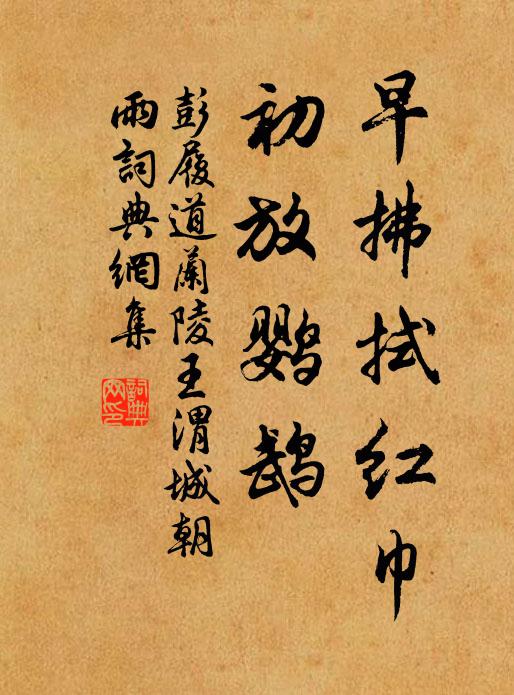 早拂拭红巾
初放鹦鹉
彭履道蘭陵王渭城朝
雨詞典網集
詞典網印